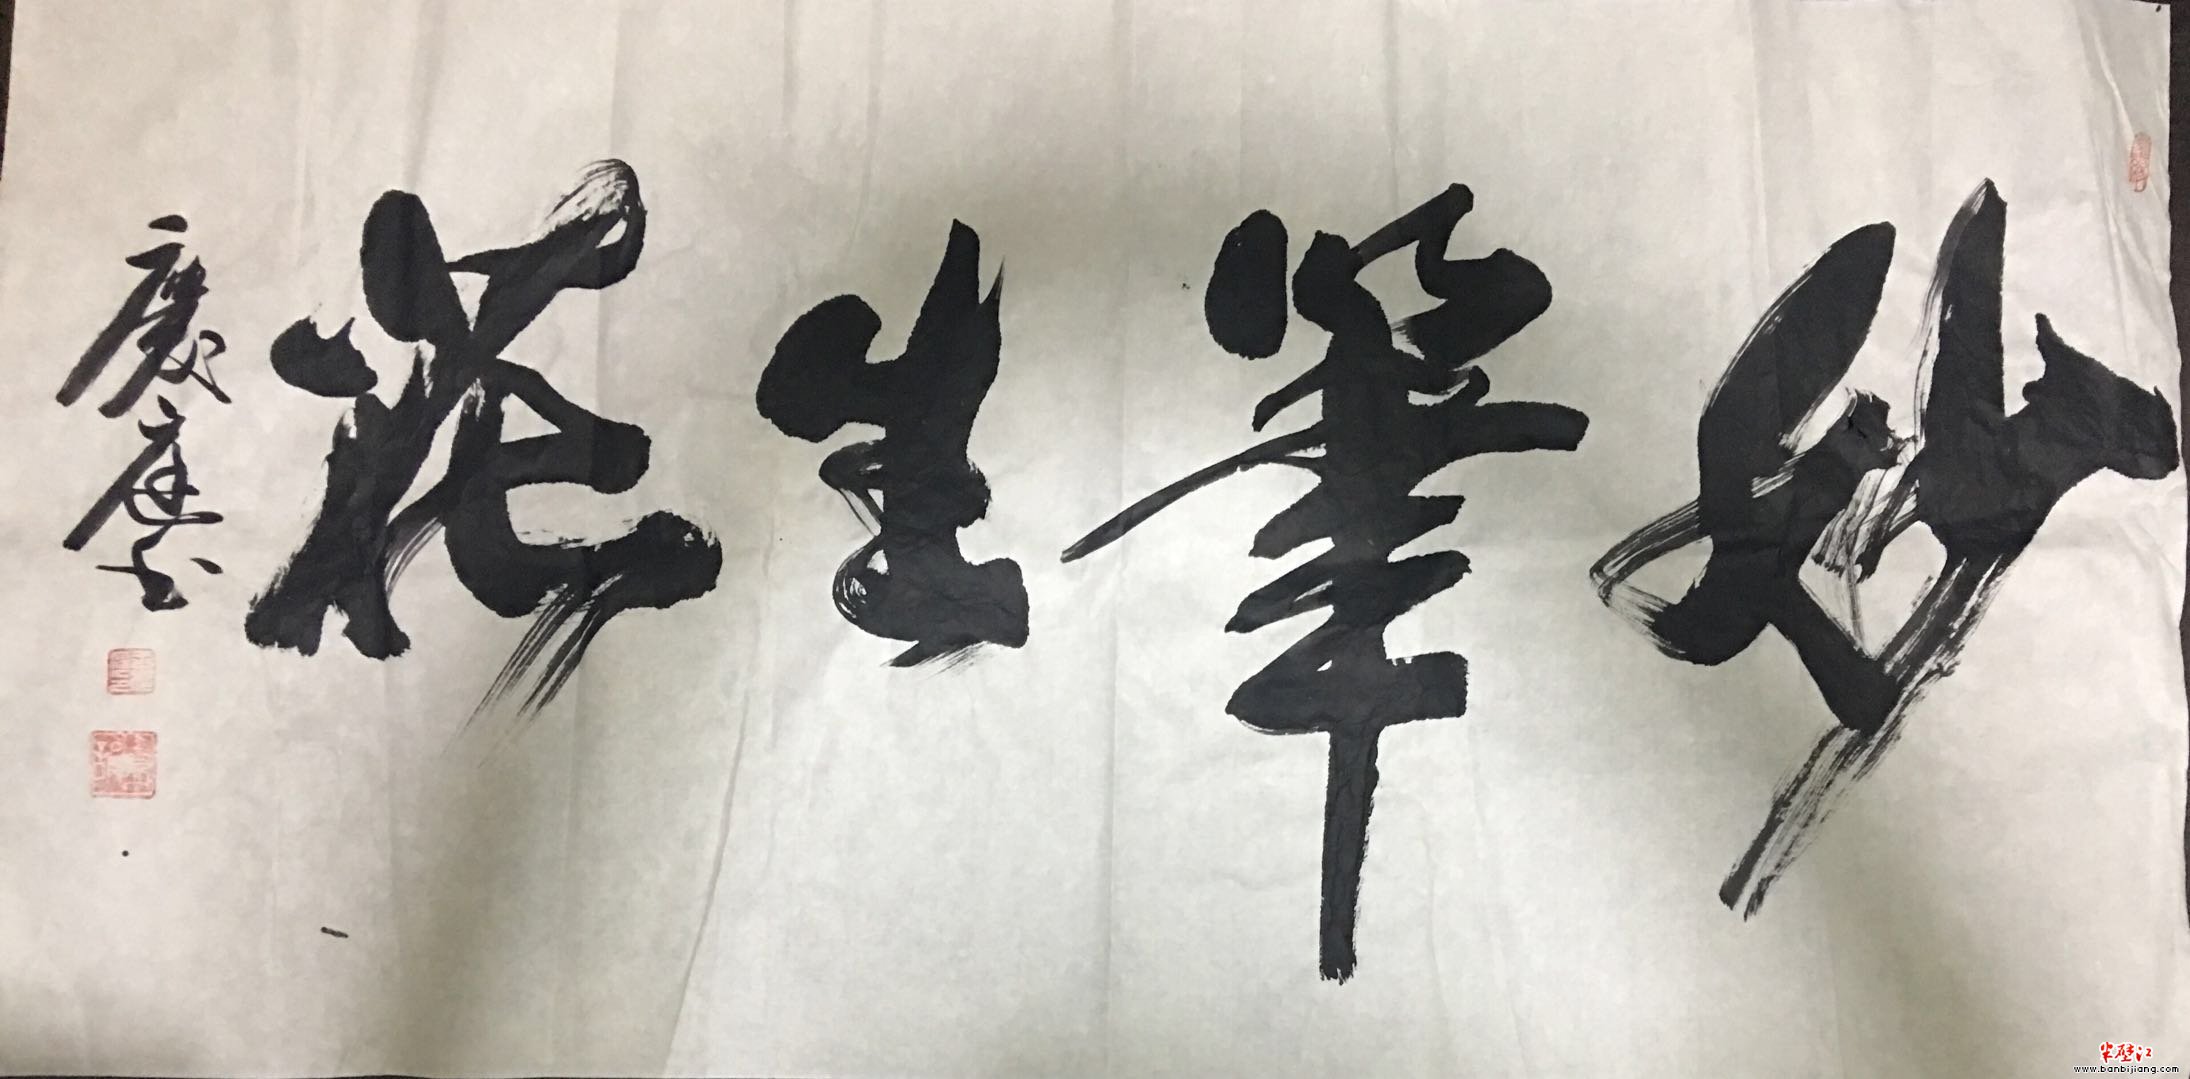 妙筆生花
慶庭书
半壁江
www.banbijiang.com